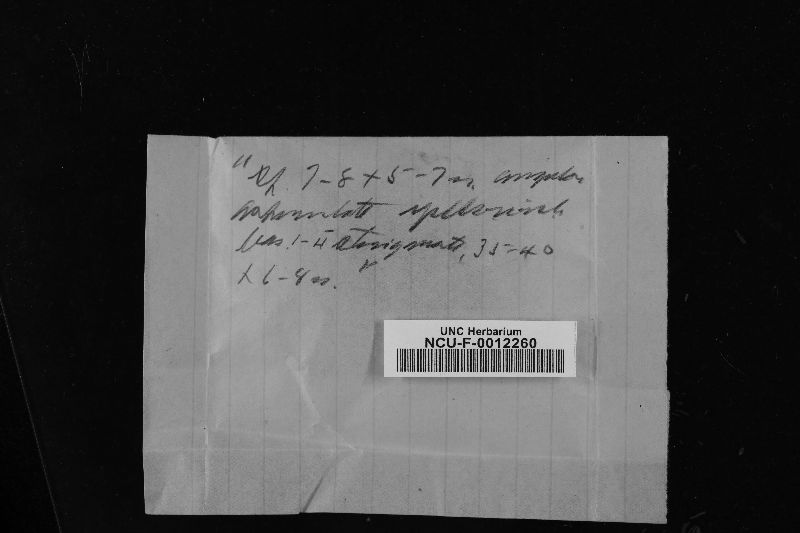 "Sp. 7-8 x 5-7 u. angular
bas. 1-4 sterigmata, 35-40
x 6-8 u.
UNC Herbarium
NCU-F-0012260